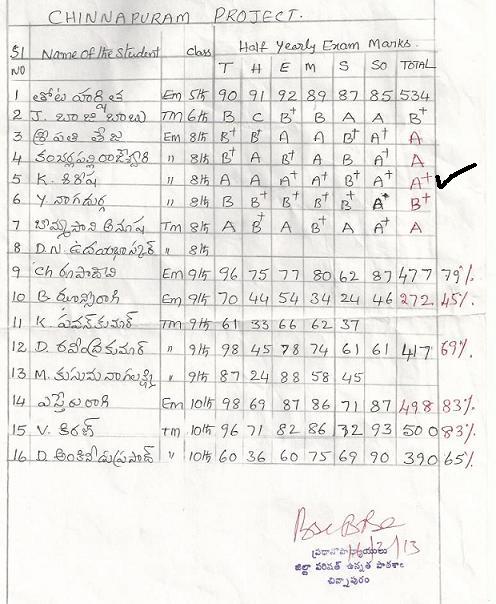 CHINNAPURAM PROJECT.
Sl NO Name of the Student class Half Yearly Exam Marks.
T H E M S So TOTAL
1 తోట హర్షిత Em 5th 90 91 92 89 87 85 534
2 J. బాజి బాబు TM 6th B C B+ B A A B+
3 శ్రీపతి తేజ Em 8th B+ B+ A A B+ A+ A
4 Em 8th B+ A B+ A B A+ A
5 K. శిరీష " 8th A A A+ A+ B+ A+ A+
6 Y నాగదుర్గ " 8th B B+ B+ B+ B+ A+ B+
7 బొమ్మసాని అనూష Tm 8th A B+ A B+ A A+ A
8 D.N. ఉదయభాస్కర్ " 8th
9 Ch రూపాదేవి Em 9th 96 75 77 80 62 87 477 79%
10 B. ఝాన్సీరాణి Em 9th 70 44 54 34 24 46 272 45%
11 K. పవన్ కుమార్ TM 9th 61 33 66 62 37
12 D. రవీంద్రకుమార్ " 9th 98 45 78 74 61 61 417 69%
13 M. కుసుమ నాగలక్ష్మి " 9th 87 24 88 58 45
14 ఎస్తేరు రాణి Em 10th 98 69 87 86 71 87 498 83%
15 V. కిరణ్ Tm 10th 96 71 82 86 72 93 500 83%
16 D. అంకినీడుప్రసాద్ " 10th 60 36 60 75 69 90 390 65%
ప్రధానోపాధ్యాయులు
జిల్లా పరిషత్ ఉన్నత పాఠశాల
చిన్నాపురం